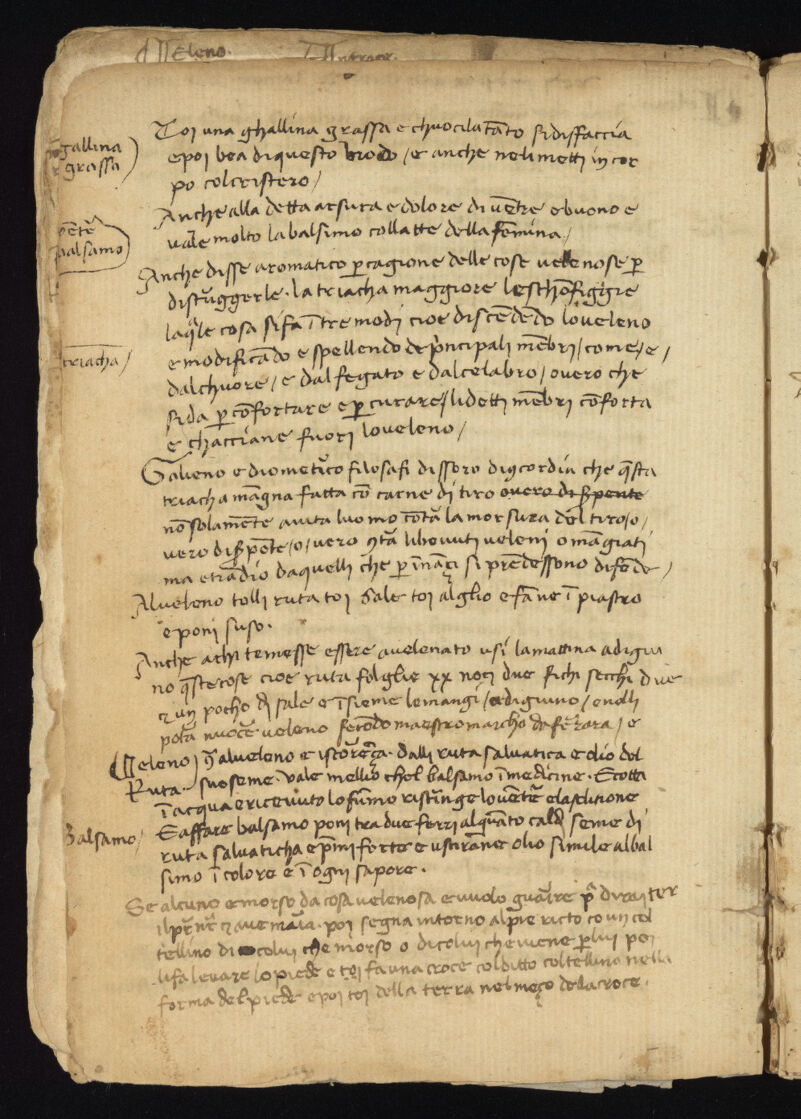 Veleno.
gallina
grassa
Toi una ghallina grassa e chuocila tãto si disfaccia
e poi bea di questo brodo / e anche neli metti in cor
po col cristero /
Anche alla detta arsura e dolore di vẽtre e buono e
vẽtre
balsamo
vale molto la balsimo col latte della fẽmina /
Anche disse aromatico p cagione delle cose velenose p
distruggerle. la triacha maggiore
laq̃le cosa si fa ĩ tre modi cioe discẽdẽdo lo veleno
triacha /
e modificãdo e spellendo de prĩcipali mẽbri / come / e /
dal chuore / e dal fegato e dal celabro / overo che
si da p cõfortare e p curare / li detti mẽbri cõforta
e chacciane fuori lo veleno /
Galieno e filosafi dissoro che q̃sta
triacha mãgna fatta cõ carne di tiro overo di s̃pente
nõ solamẽte aiuta luomo cõtã la morsura del tiro / o /
vero di s̃pẽte / o / vero li bevuti veleni o mãgiati
ma daquelli che p ĩnãçi si prẽdessono difẽde /
Al veleno tolli ruta toi sale toi alglio e fãne ĩ piastro
e poni suso.
Anche a chi temesse essere avelenato usi la mattina a digiu
no q̃ste cose cioe ruta folglie xx noci due fichi secchi due
un pocho di sale e ĩsieme le mangi / a digiuno / e nolli
potrà nuocẽ veleno secõdo maestro marcho da fẽrara / e
Veleno
Ruta.
al veleno dalli ruta salvatica e olio del
suo seme. vale mellio chel balsamo ĩ medicine. E cotta
ĩ acqua e ricevuto lo fũmo ristrĩnge lo vẽtre
Balsamo /
E affare balsamo poni tra due ferri alquãto caldi seme di
ruta salvaticha e p̃mi forte e usciranne olio simile al bal
simo ĩ colore e ĩ ogni sapore.
Se alcuno e morso da cosa velenosa e vuolo guarire
ave maria. poi segna intorno al pie ricto co un col
tellino di colui che morso o di colui che viene p lui poi
li fa levare lo piede e toi fa una croce col ditto coltellino nella
forma del piede e poi toi della terra nel meço de la croce.